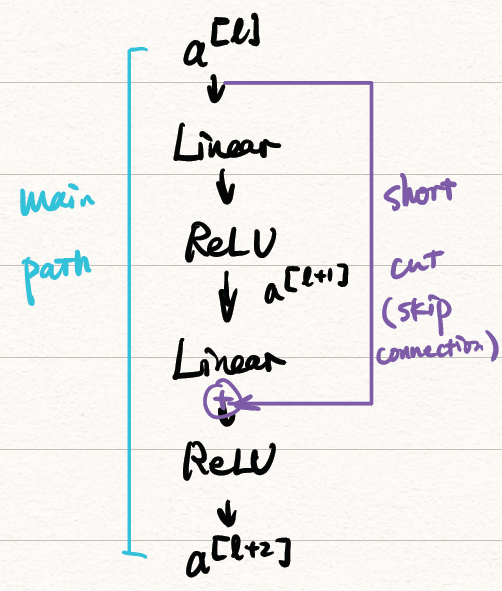 a[l]
Linear
main
path
ReLU
a[l+1]
short
cut
(skip
connection)
Linear
+
ReLU
a[l+2]